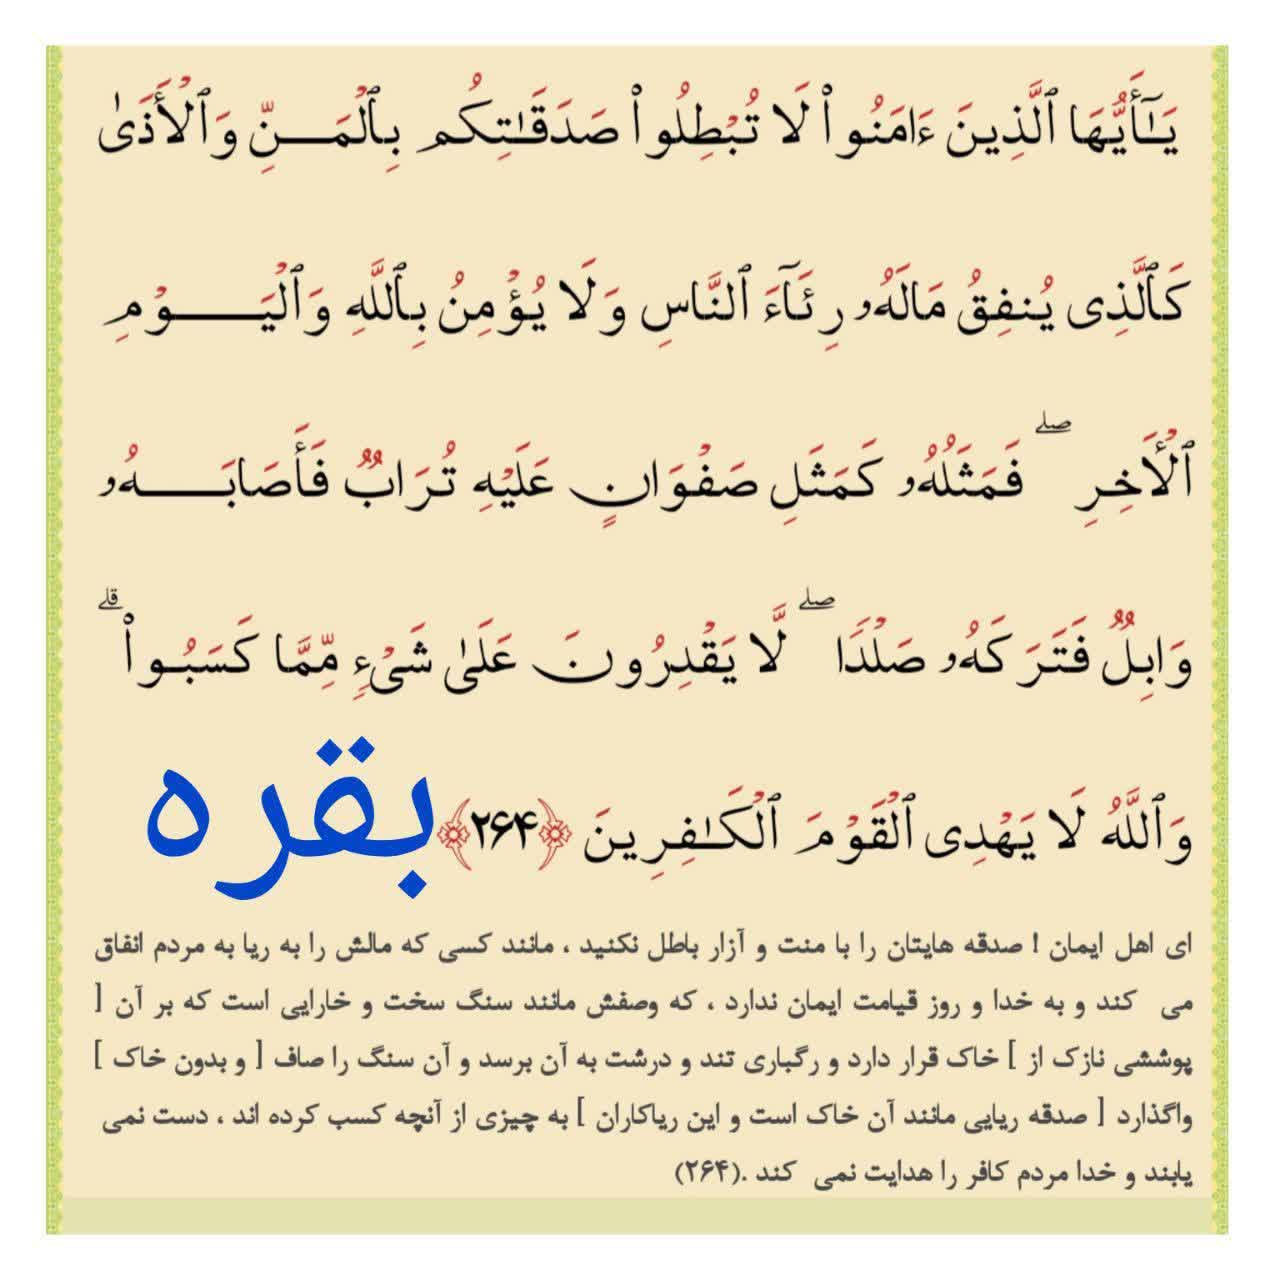 يَـٰٓأَيُّهَا ٱلَّذِينَ ءَامَنُوا۟ لَا تُبْطِلُوا۟ صَدَقَـٰتِكُم بِٱلْمَنِّ وَٱلْأَذَىٰ
كَٱلَّذِى يُنفِقُ مَالَهُۥ رِئَآءَ ٱلنَّاسِ وَلَا يُؤْمِنُ بِٱللَّهِ وَٱلْيَوْمِ
ٱلْأَخِرِ ۖ فَمَثَلُهُۥ كَمَثَلِ صَفْوَانٍ عَلَيْهِ تُرَابٌ فَأَصَابَهُۥ
وَابِلٌ فَتَرَكَهُۥ صَلْدًا ۖ لَّا يَقْدِرُونَ عَلَىٰ شَىْءٍ مِّمَّا كَسَبُوا۟ ۗ
وَٱللَّهُ لَا يَهْدِى ٱلْقَوْمَ ٱلْكَـٰفِرِينَ ﴿۲۶۴﴾ بقره
ای اهل ایمان ! صدقه هایتان را با منت و آزار باطل نکنید ، مانند کسی که مالش را به ریا به مردم انفاق
می کند و به خدا و روز قیامت ایمان ندارد ، که وصفش مانند سنگ سخت و خارایی است که بر آن [
پوششی نازک از ] خاک قرار دارد و رگباری تند و درشت به آن برسد و آن سنگ را صاف [ و بدون خاک ]
واگذارد [ صدقه ریایی مانند آن خاک است و این ریاکاران ] به چیزی از آنچه کسب کرده اند ، دست نمی
یابند و خدا مردم کافر را هدایت نمی کند .(۲۶۴)